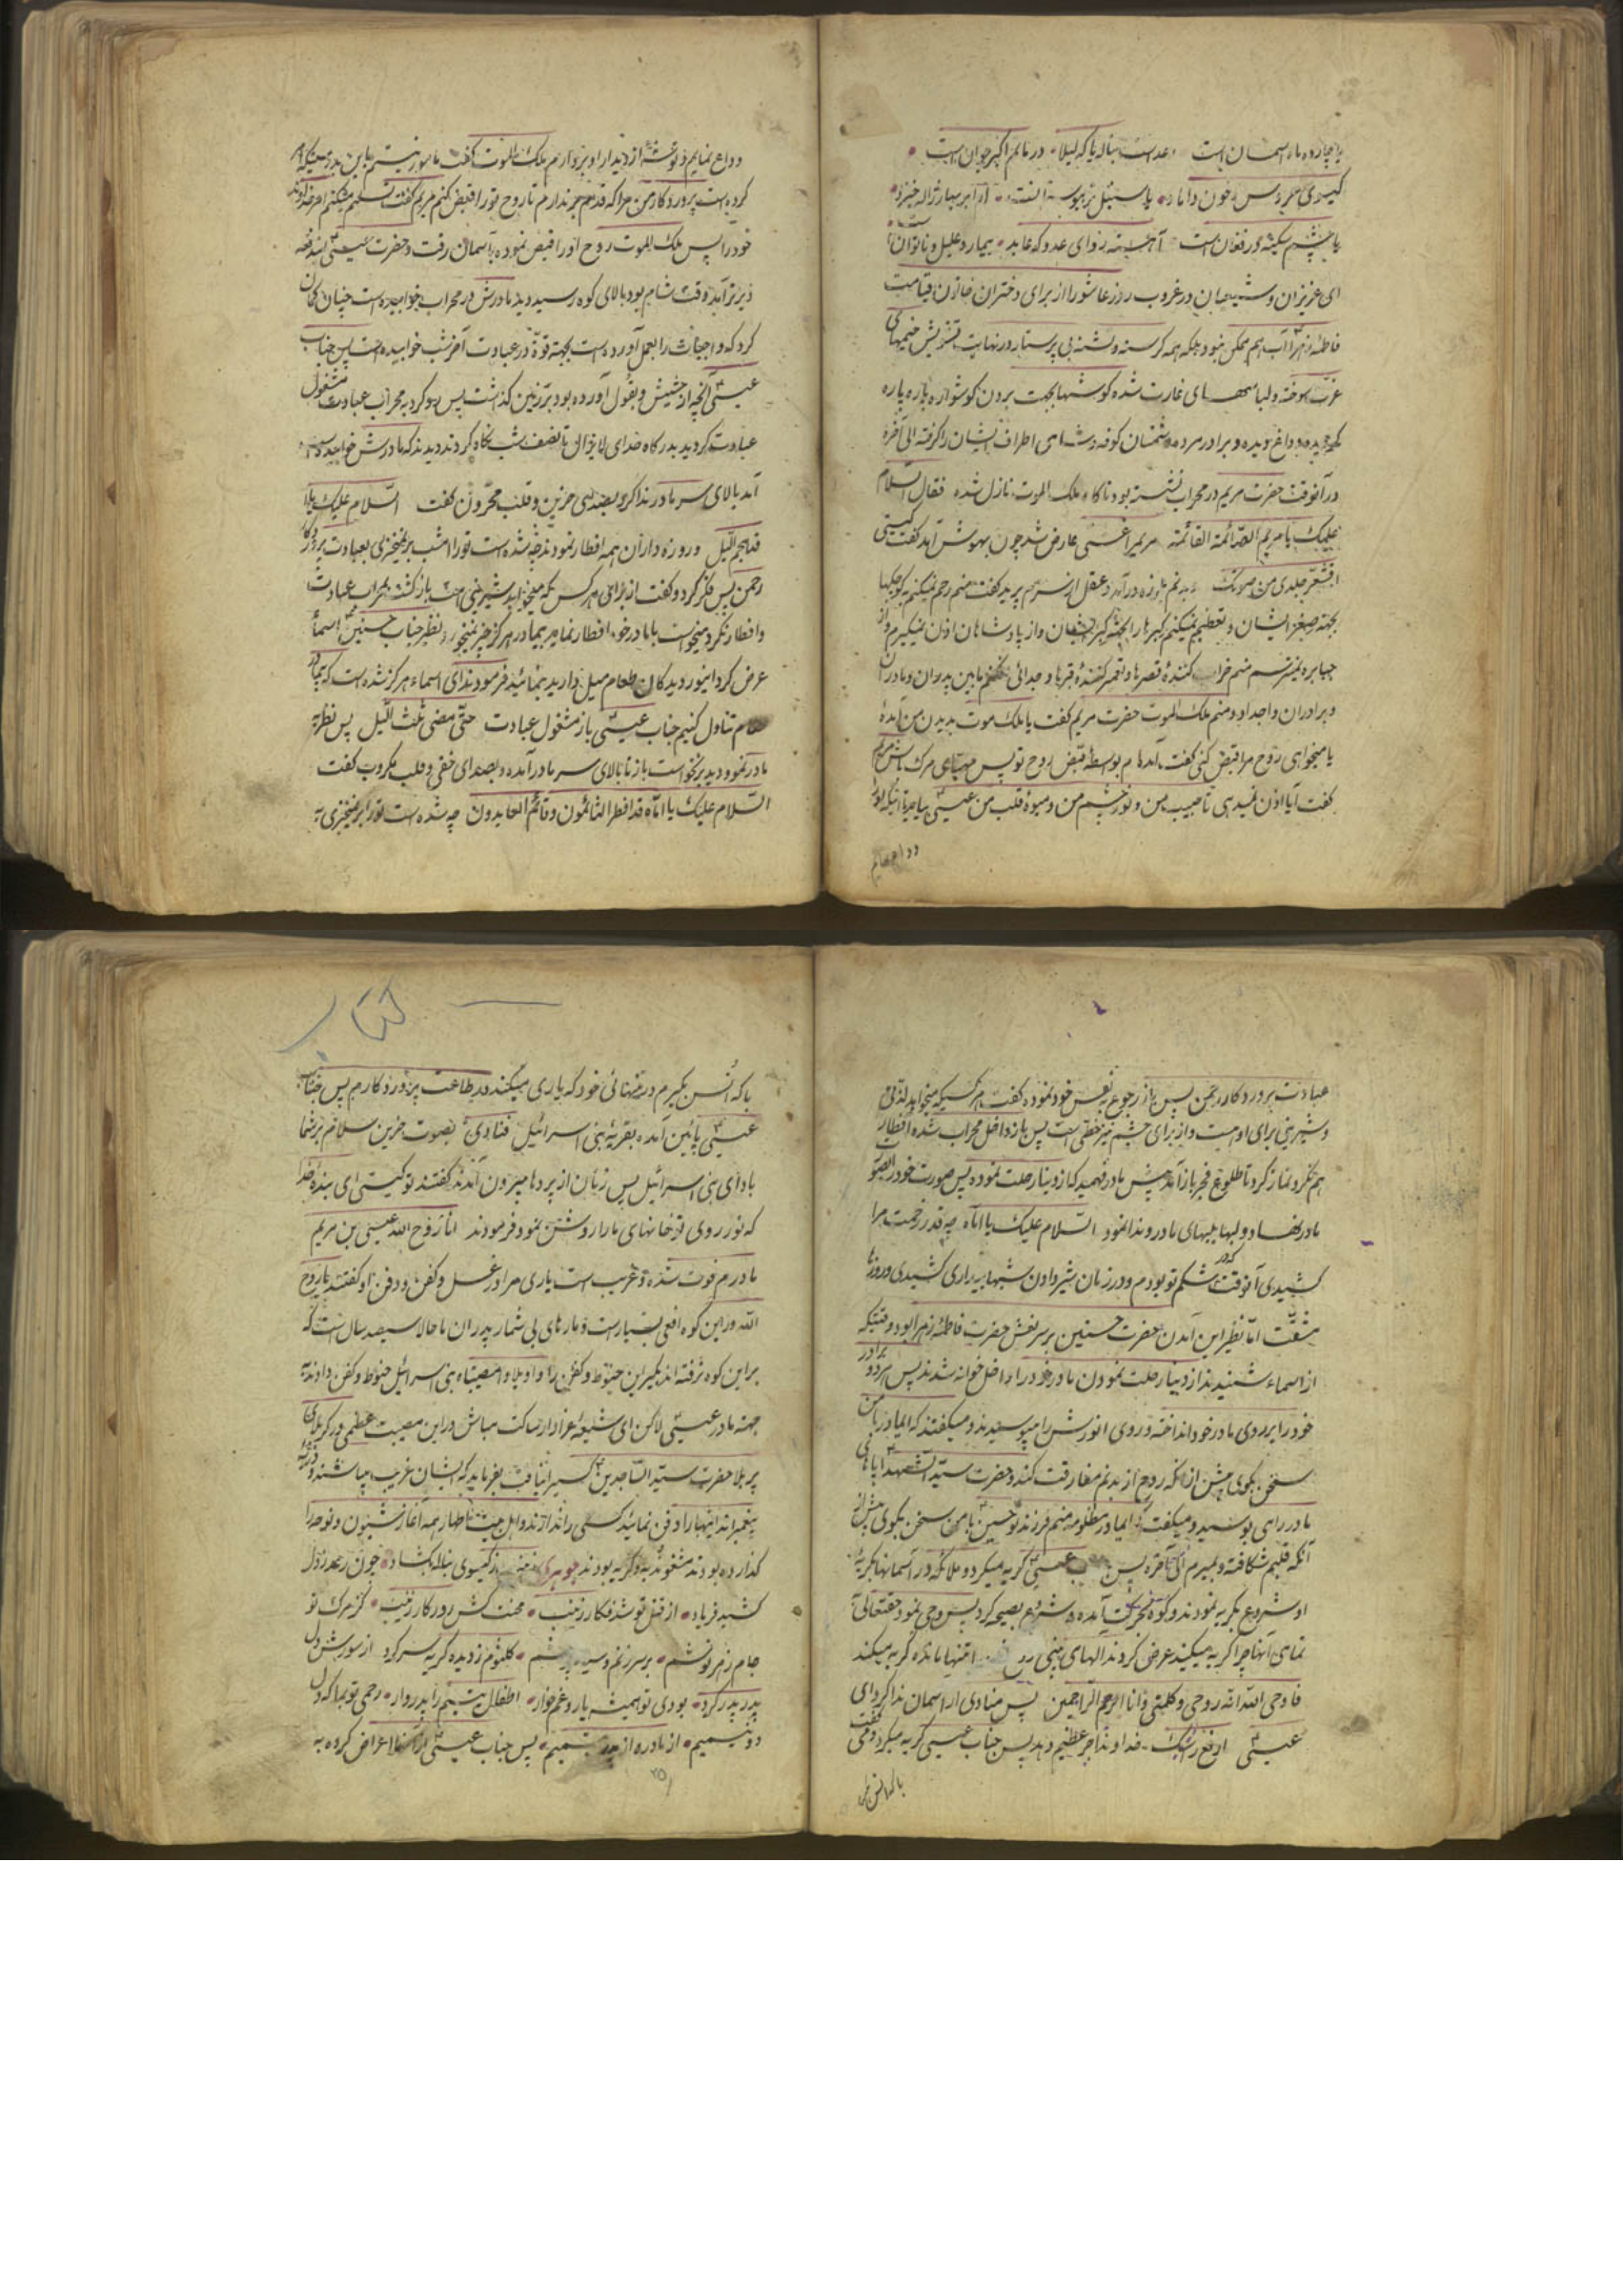 یا چارده ماه آسمان است رعد است بناله یا که لیلا در ماتم اکبر جوان است
گیسوی عروس خون داماد یا سنبل تر بهوسه ابر بهار ژاله خیزد
یا چشم سکینه در فغان است آهسته رو ای عدو که عابد بیمار و علیل و ناتوان است
ای عزیزان و شیعیان در غروب روز عاشورا از برای دختران خاتون قیامت
فاطمه زهرا آب هم ممکن نبود بلکه همه گرسنه و تشنه بی پرستار در نهایت تشویش خیمهای
عزت سوخته و لباسهای غارت شده گوشها بجهت بردن گوشواره پاره پاره
داغ دیده و برادر مرده دشمنان کوفه و شامی اطراف ایشان را گرفته الی آخره
در آنوقت حضرت مریم در محراب نشسته بود ناگاه ملک الموت نازل شده فقال السلام
علیک یا مریم الصائمة القائمة مریم را غشی عارض شد چون بهوش آمد گفت کیستی
اقشعر جلدی من صوتک بدنم بلرزه درآمد و عقل از سرم پرید گفت منم رحم نمیکنم بکوچکها
بجهة صغر ایشان و تعظیم نمیکنم کبیرها را بجهة کبر ایشان و از پادشاهان اذن نمیگیرم و از
جبابره نمیترسم منم خراب کنندهٔ قصرها و تعمیر کنندهٔ قبرها و جدائی مابین پدران و مادران
و برادران و اجداد و منم ملک الموت حضرت مریم گفت یا ملک موت بدیدن من آمدهٔ
یا میخواهی روح مرا قبض کنی گفت آمدهام بواسطهٔ قبض روح تو پس مهیای مرگ باش مریم
گفت آیا اذن نمیدهی تا حبیب من و نور چشم من و میوهٔ قلب من عیسی بیاید تا آنکه او را
وداع نمایم
وداع نمایم و توشهٔ از دیدار او بردارم ملک الموت گفت مامور نیستم باین بدرستیکه امر
کرده است پروردگار من مرا که قدم برندارم تا روح تو را قبض کنم مریم گفت تسلیم میکنم امر خداوند
خود را پس ملک الموت روح او را قبض نموده بآسمان رفت و حضرت عیسی ایندفعه
دیرتر آمد وقت شام بود بالای کوه رسید و دید مادرش در محراب خوابیده است چنان گمان
کرد که واجبات را بعمل آورده است بجهته قوة در عبادت آخر شب خوابیده است پس جناب
عیسی آنچه از حشیش و بقول آورده بود بر زمین گذاشت پس رو کرد به محراب عبادت مشغول
عبادت گردید بدرگاه خدای لایزال تا نصف شب نگاه کردند دیدند که مادرش خوابیده
آمد بالای سر مادر ندا کرد بصدای حزین و قلب محزون گفت السلام علیک یا اماه
قد هجم اللیل و روزه داران همه افطار نمودند چه شده است تو را امشب برنمیخیزی بعبادت پروردگار
رحمن پس فکر کرد و گفت از برای هر کس که میخوابد شیرینی است بازگشت بمحراب عبادت
و افطار نکرد میخواست با مادر خود افطار نماید بیمادر هرگز چیز نمیخورد نظیر جناب حسنین اسماء
عرض کرد ای نور دیدگان طعام میل دارید بنمائید فرمودند ای اسماء هرگز شده است که بیمادر
طعام تناول کنیم جناب عیسی باز مشغول عبادت حتی مضی ثلث اللیل پس نظر به
مادر نمود دید برنخواست باز تا بالای سر مادر آمده و بصدای خفی و قلب مکروب گفت
السلام علیک یا اماه قد افطر الصائمون و قائم العابدون چه شده است تو را برنمیخیزی به
عبادت پروردگار رحمن پس باز رجوع به نفس خود نموده گفت هر کسیکه میخوابد لذتی
و شیرینی برای او هست و از برای چشم نیز حظی است پس باز داخل محراب شده افطار
هم نکرد نماز کرد تا طلوع فجر باز آمد پیش مادر فهمید که از دنیا رحلت نموده پس صورت خود را بصورت
مادر نهاد و لبها بلبهای مادر و ندا نمود السلام علیک یا اماه چه قدر زحمت مرا
کشیدی آنوقت که در شکم تو بودم و در زمان شیر دادن شبها بیداری کشیدی و روزها
مشقت اما نظیر این آمدن حضرت حسنین بر سر نعش حضرت فاطمه زهرا بود وقتیکه
از اسماء شنیدند از دنیا رحلت نمودن مادر خود را داخل خوانه شدند پس هر دو برادر
خود را بر روی مادر خود انداخته و روی انورش را میبوسیدند و میگفتند که ایمادر با من
سخن بگوی پیش از آنکه روح از بدنم مفارقت کند و حضرت سید الشهدا پاهای
مادر را می بوسید و میگفت ایمادر مظلومه منم فرزند تو حسین با من سخن بگوی پیش از
آنکه قلبم شکافته و بمیرم الی آخره پس عیسی گریه میکرد و ملائکه در آسمانها بگریهٔ
او شروع بگریه نمودند و کوه بحرکت آمده و شروع بصیحه کرد پس وحی نمود حقتعالی
تمامی آنها چرا گریه میکنید عرض کردند الهای بینی تنها مانده گریه میکند
فاوحی الله انه روحی و کلمتی و انا ارحم الراحمین پس منادی از آسمان ندا کرد ای
عیسی ارفع رأسک خداوند اجر عظیم دهد پس جناب عیسی گریه میکرد و می گفت
با که انس
با که انس بگیرم در تنهائی خود که یاری میکند در طاعت پروردگارم پس جناب
عیسی پائین آمده بقریهٔ بنی اسرائیل فنادی بصوت حزین سلام بر شما
باد ای بنی اسرائیل پس زنان از پردها بیرون آمدند گفتند تو کیستی ای بندهٔ خدا
که نور روی تو خانهای ما را روشن نمود فرمودند انا روح الله عیسی بن مریم
مادرم فوت شده و غریب است یاری مرا در غسل و کفن و دفن او گفتند یا روح
الله در این کوه افعی بسیار است و مارهای بی شمار پدران ما حالا سیصد سال است که
بر این کوه نرفته اند بگیر این حنوط و کفن را واویلا وامصیبتاه بنی اسرائیل حنوط و کفن دادند
جهته مادر عیسی لاکن ای شیعه عزادار ساکت مباش در این مصیبت عظمی در کربلای
پر بلا حضرت سید الساجدین کسی را نیافت بفرماید که ایشان غریب
پیغمبرند اینها را دفن نمائید کسی را ندادند و اهل بیت اطهار همه آغاز شیون و نوحه را
گذارده بودند مشغول ندبه و گریه بودند جوهری گیسوی بناله بگشاد چون رعد ز دل
کشید فریاد از قتل تو شد فکار زینب محنت کش روزگار زینب کز مرگ تو
جام زهر نوشم بر سر زنم و سیه پوشم کلثوم ز دیده گریه سر کرد از سوزش دل
پدر پدر کرد بودی تو همیشه یار و غمخوار اطفال یتیم را پدروار رحمی تو بما که دل
دو نیمیم از مادر و از پدر یتیمیم پس جناب عیسی از آنها اعراض کرده به
۲۵